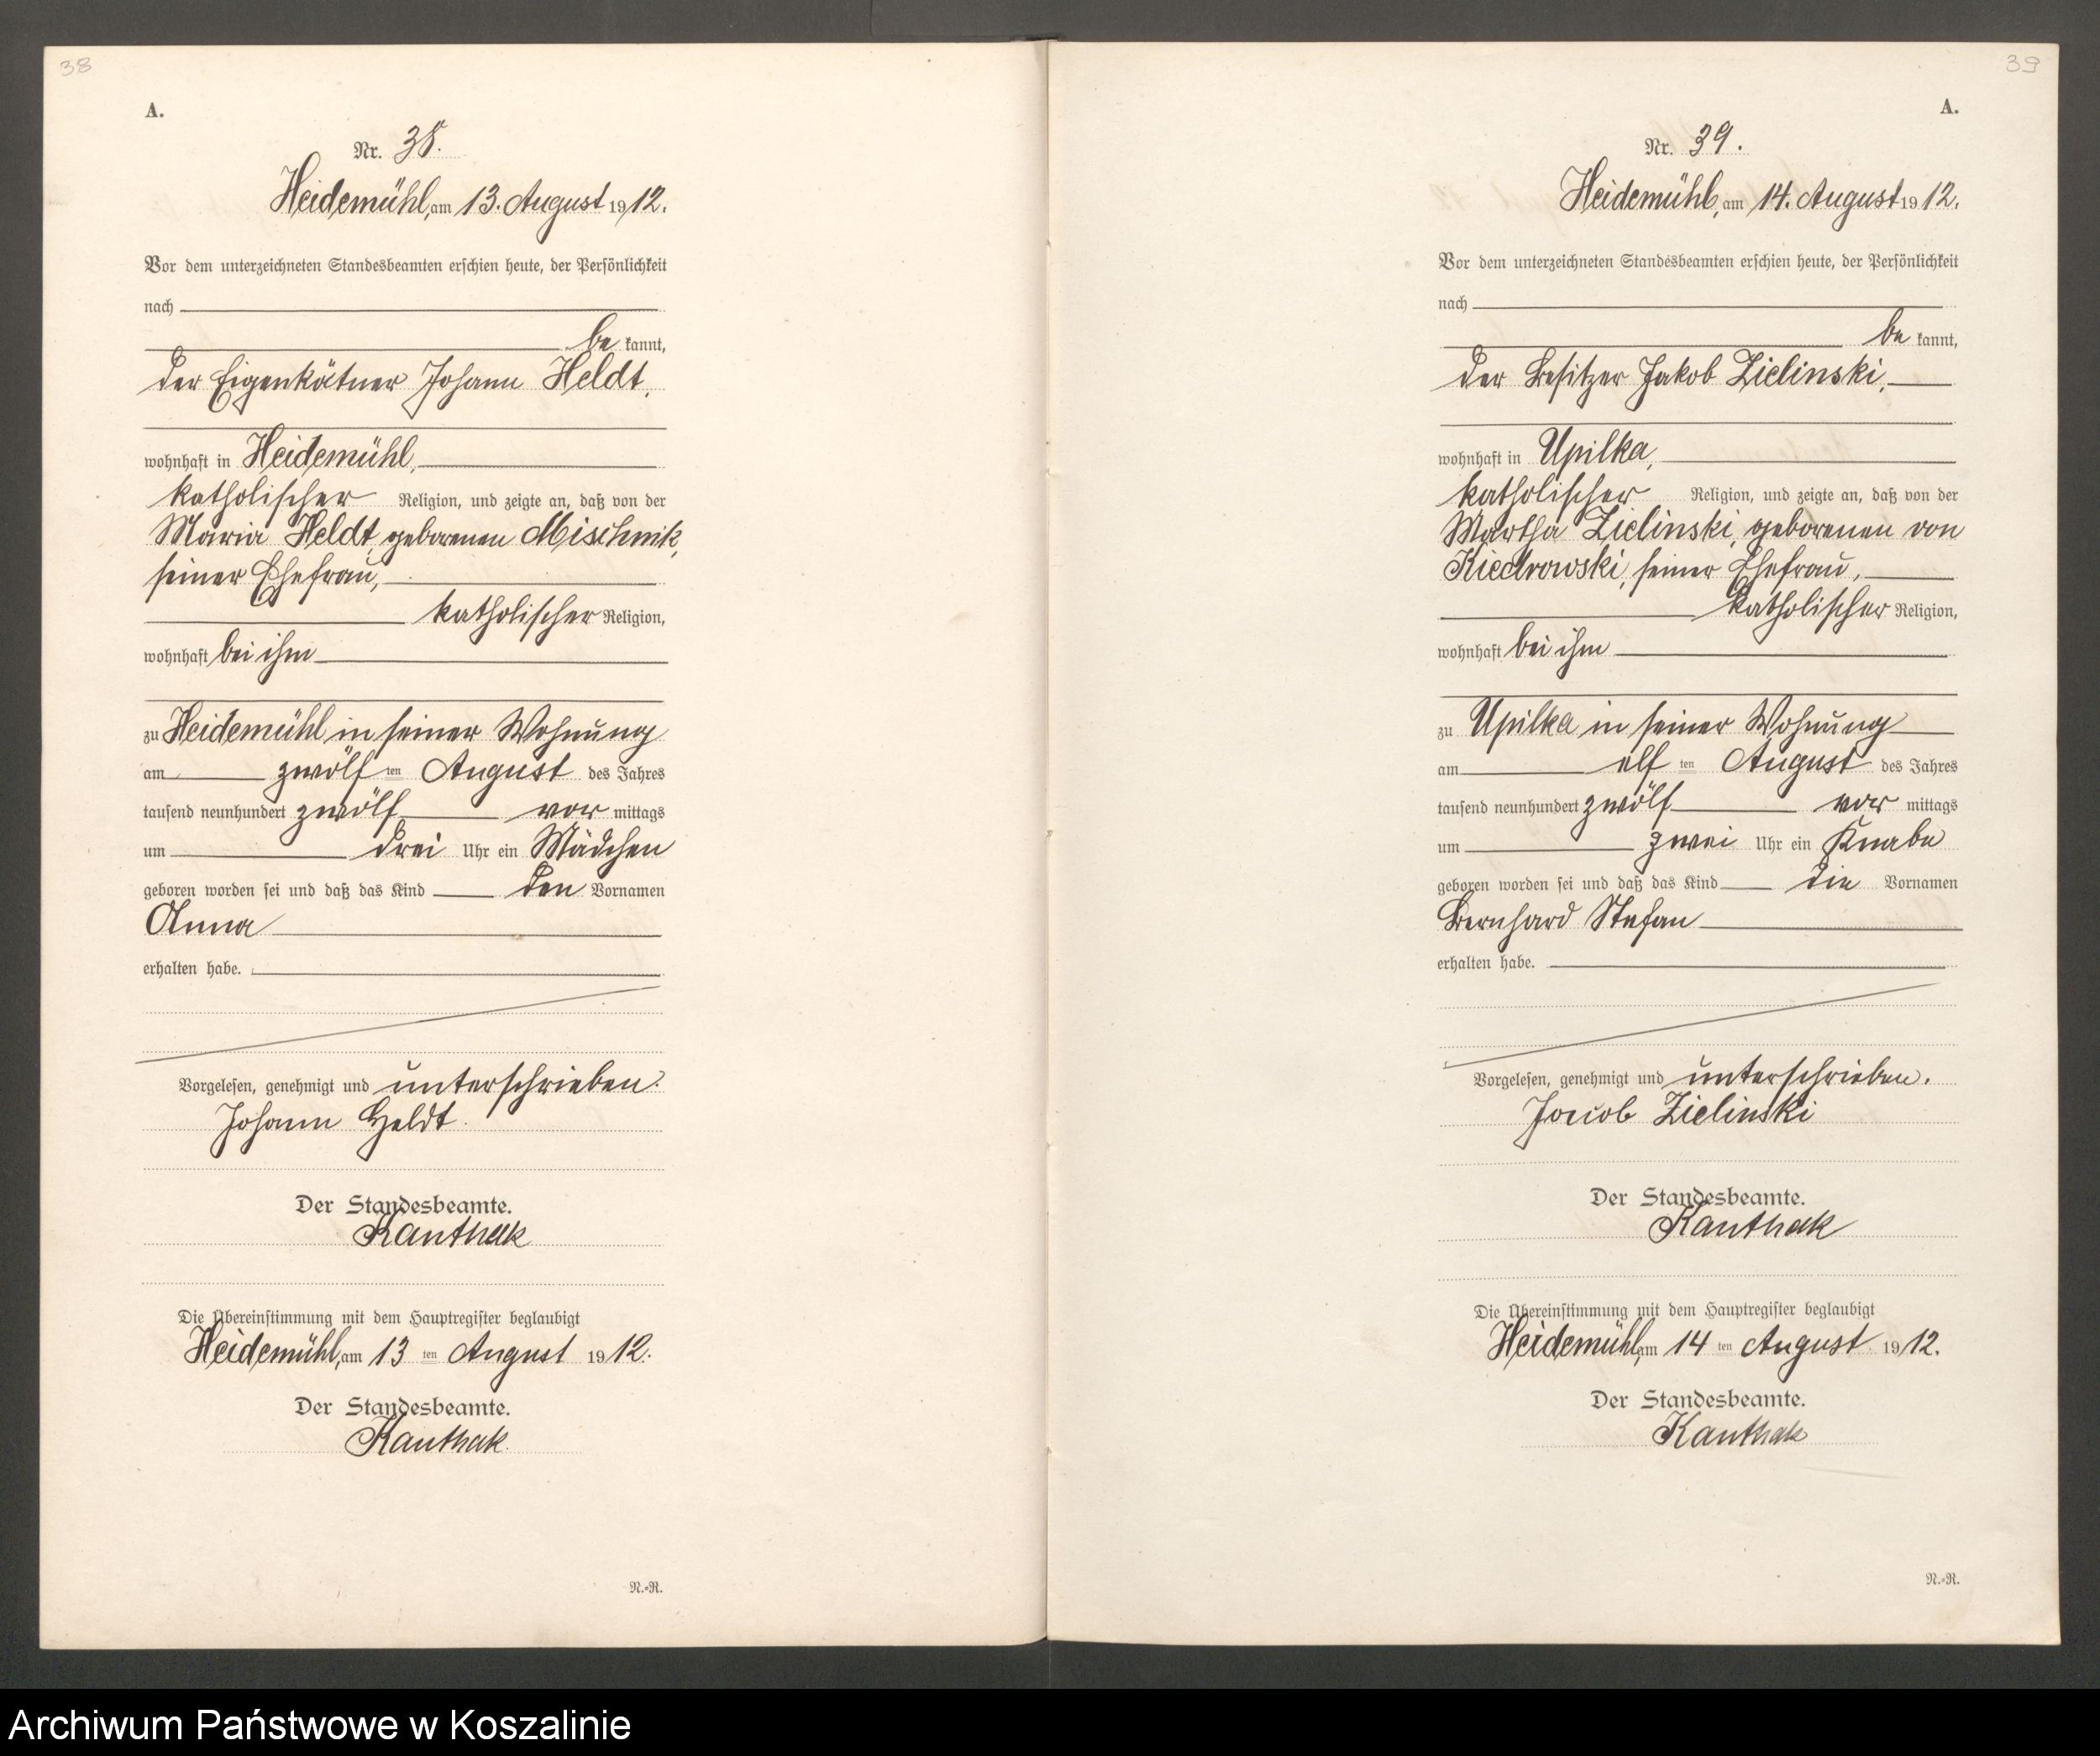 38
A.
Nr. 38.
Heidemühl, am 13. August 1912.
Vor dem unterzeichneten Standesbeamten erschien heute, der Persönlichkeit
nach
be kannt,
der Eigenkätner Johann Heldt,
wohnhaft in Heidemühl,
katholischer Religion, und zeigte an, daß von der
Maria Heldt, geborenen Mischnik,
seiner Ehefrau,
katholischer Religion,
wohnhaft bei ihm
zu Heidemühl in seiner Wohnung
am zwölf ten August des Jahres
tausend neunhundert zwölf vor mittags
um drei Uhr ein Mädchen
geboren worden sei und daß das Kind den Vornamen
Anna
erhalten habe.
Vorgelesen, genehmigt und unterschrieben.
Johann Heldt.
Der Standesbeamte.
Kanthak
Die Übereinstimmung mit dem Hauptregister beglaubigt
Heidemühl, am 13 ten August 1912.
Der Standesbeamte.
Kanthak.
N.=R.
39
A.
Nr. 39.
Heidemühl, am 14. August 1912.
Vor dem unterzeichneten Standesbeamten erschien heute, der Persönlichkeit
nach
be kannt,
der Besitzer Jakob Zielinski,
wohnhaft in Upilka,
katholischer Religion, und zeigte an, daß von der
Martha Zielinski, geborenen von
Kiedrowski, seiner Ehefrau,
katholischer Religion,
wohnhaft bei ihm
zu Upilka in seiner Wohnung
am elf ten August des Jahres
tausend neunhundert zwölf vor mittags
um zwei Uhr ein Knabe
geboren worden sei und daß das Kind die Vornamen
Bernhard Stefan
erhalten habe.
Vorgelesen, genehmigt und unterschrieben.
Jacob Zielinski
Der Standesbeamte.
Kanthak
Die Übereinstimmung mit dem Hauptregister beglaubigt
Heidemühl, am 14 ten August 1912.
Der Standesbeamte.
Kanthak
N.=R.
Archiwum Państwowe w Koszalinie